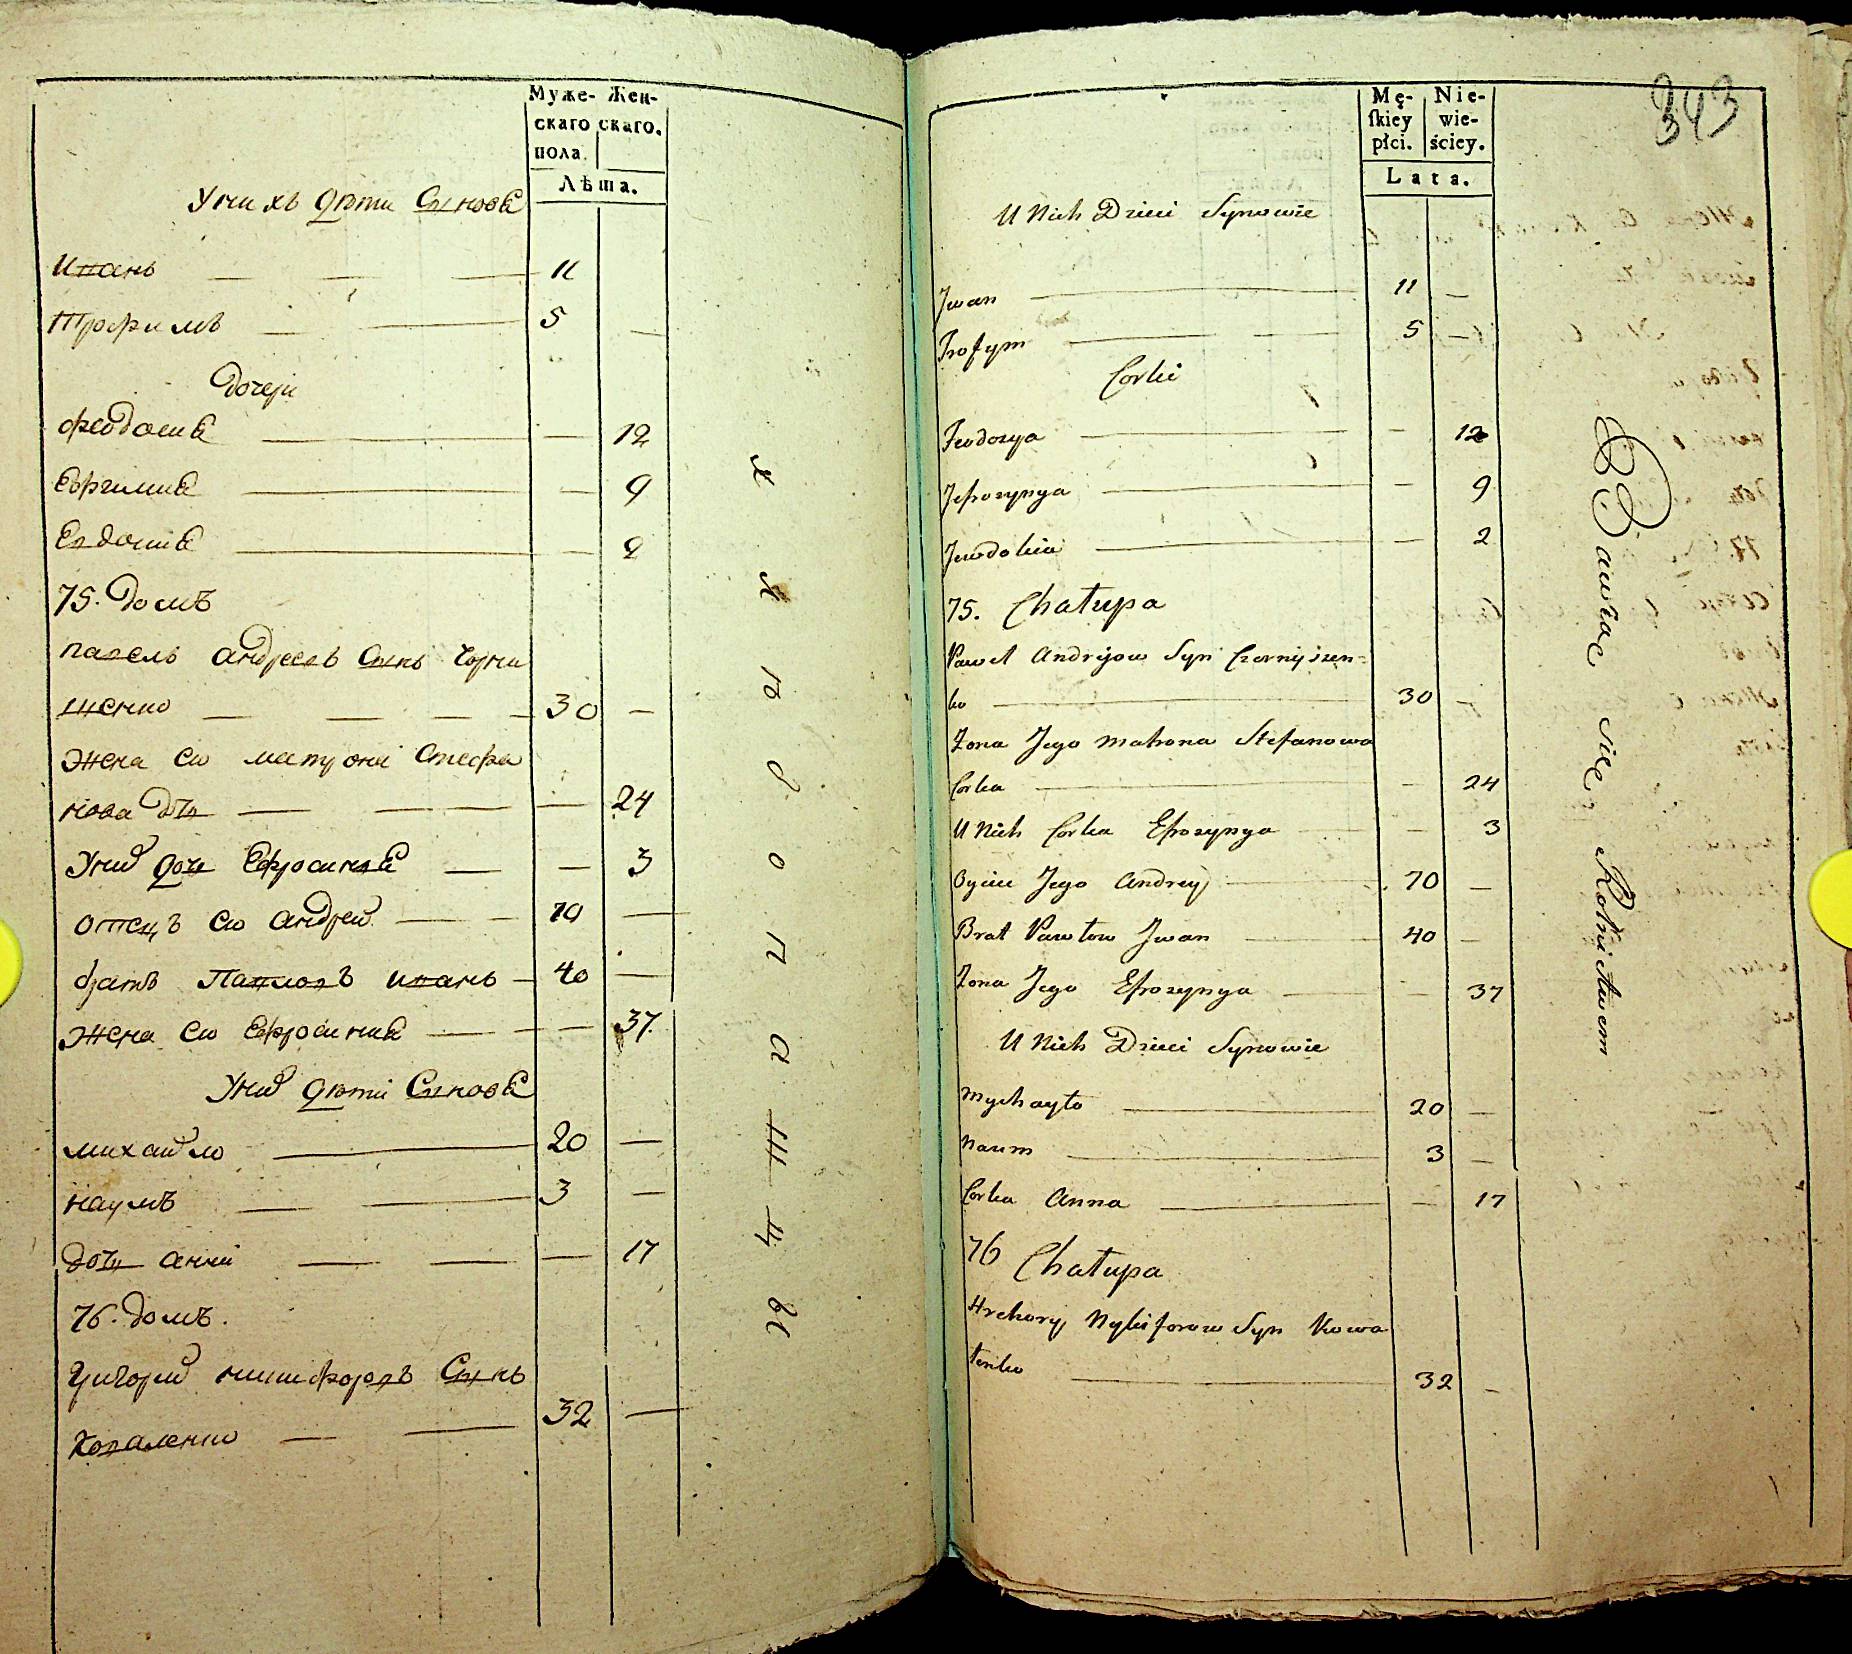 Муже- Жен-
скаго скаго.
пола.
Лѣта.
Унихъ дѣти Сынове
Иванъ 11
Трофимъ 5 —
дочери
феодосия — 12
Ефросиния — 9
Евдокия — 2
75. домъ
павелъ андреевъ Сынъ Чорни
шенко 30 —
жена его матрона Стефа
нова дочь — 24
Уний дочь Ефросиния — 3
отецъ его андрей 70 —
братъ Павловъ иванъ 40 —
жена его Ефросиния — 37.
Уний дѣти Сынове
михайло 20 —
наумъ 3 —
дочь анна — 17
76. домъ.
Григорий никифоровъ Сынъ
Коваленко 32 —
хлѣбопашцы
343
Mę- Nie-
skiey wie-
płci. ściey.
Lata.
U Nich Dzieci Synowie
Jwan 11 —
Trofym 5 —
Corki
Feodozya — 12
Jefrozynya — 9
Jewdokia — 2
75. Chałupa
Paweł Andrijow Syn Czernyszen-
ko 30 —
Zona Jego Matrona Stefanowa
Corka — 24
U Nich Corka Efrozynya — 3
Oyciec Jego Andrey 70 —
Brat Pawłow Jwan 40 —
Zona Jego Efrozynya — 37
U Nich Dzieci Synowie
Mychayło 20 —
Naum 3 —
Corka Anna — 17
76 Chałupa
Hrehory Nykiforow Syn Kowa
lenko 32 —
Bawiąc się Rolnictwem